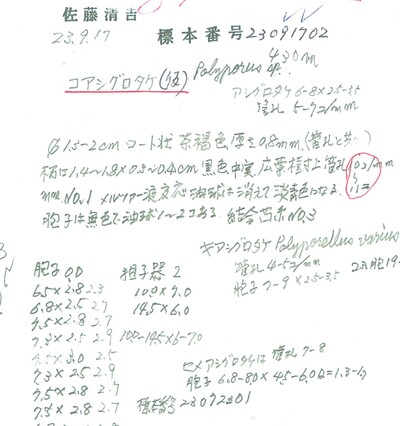 佐藤清吉
23.9.17 標本番号 23091702
430m
コアシグロタケ(仮) Polyporus sp.
アシグロタケ 6-8×2.5-3.5
管孔 5-7コ/mm
1.5-2cm ロート状 茶褐色 厚さ0.8mm (管孔と共)
柄は1.4~1.8×0.3~0.4cm 黒色中実 広葉樹上 管孔 10コ/mm
11コ
No.1 メルツァー液反応 油球は消えて淡青色になる
胞子は無色で油球1~2コある 結合菌糸No.3
キアシグロタケ Polyporellus varius
管孔 4-5コ/mm
胞子 7-9×2.5-3.5
胞子 担子器
6.5×2.8 2.3 10.0×7.0
6.8×2.5 2.7 14.5×6.0
7.5×2.8 2.7
7.3×2.5 2.9 10.0-14.5×6-7.0
7.5×3.0 2.5
7.3×2.5 2.9
7.5×2.8 2.7
7.5×2.8 2.7
ヒメアシグロタケは 管孔 7-8
胞子 6.8-8.0×4.5-6.0
標本番号 23072801